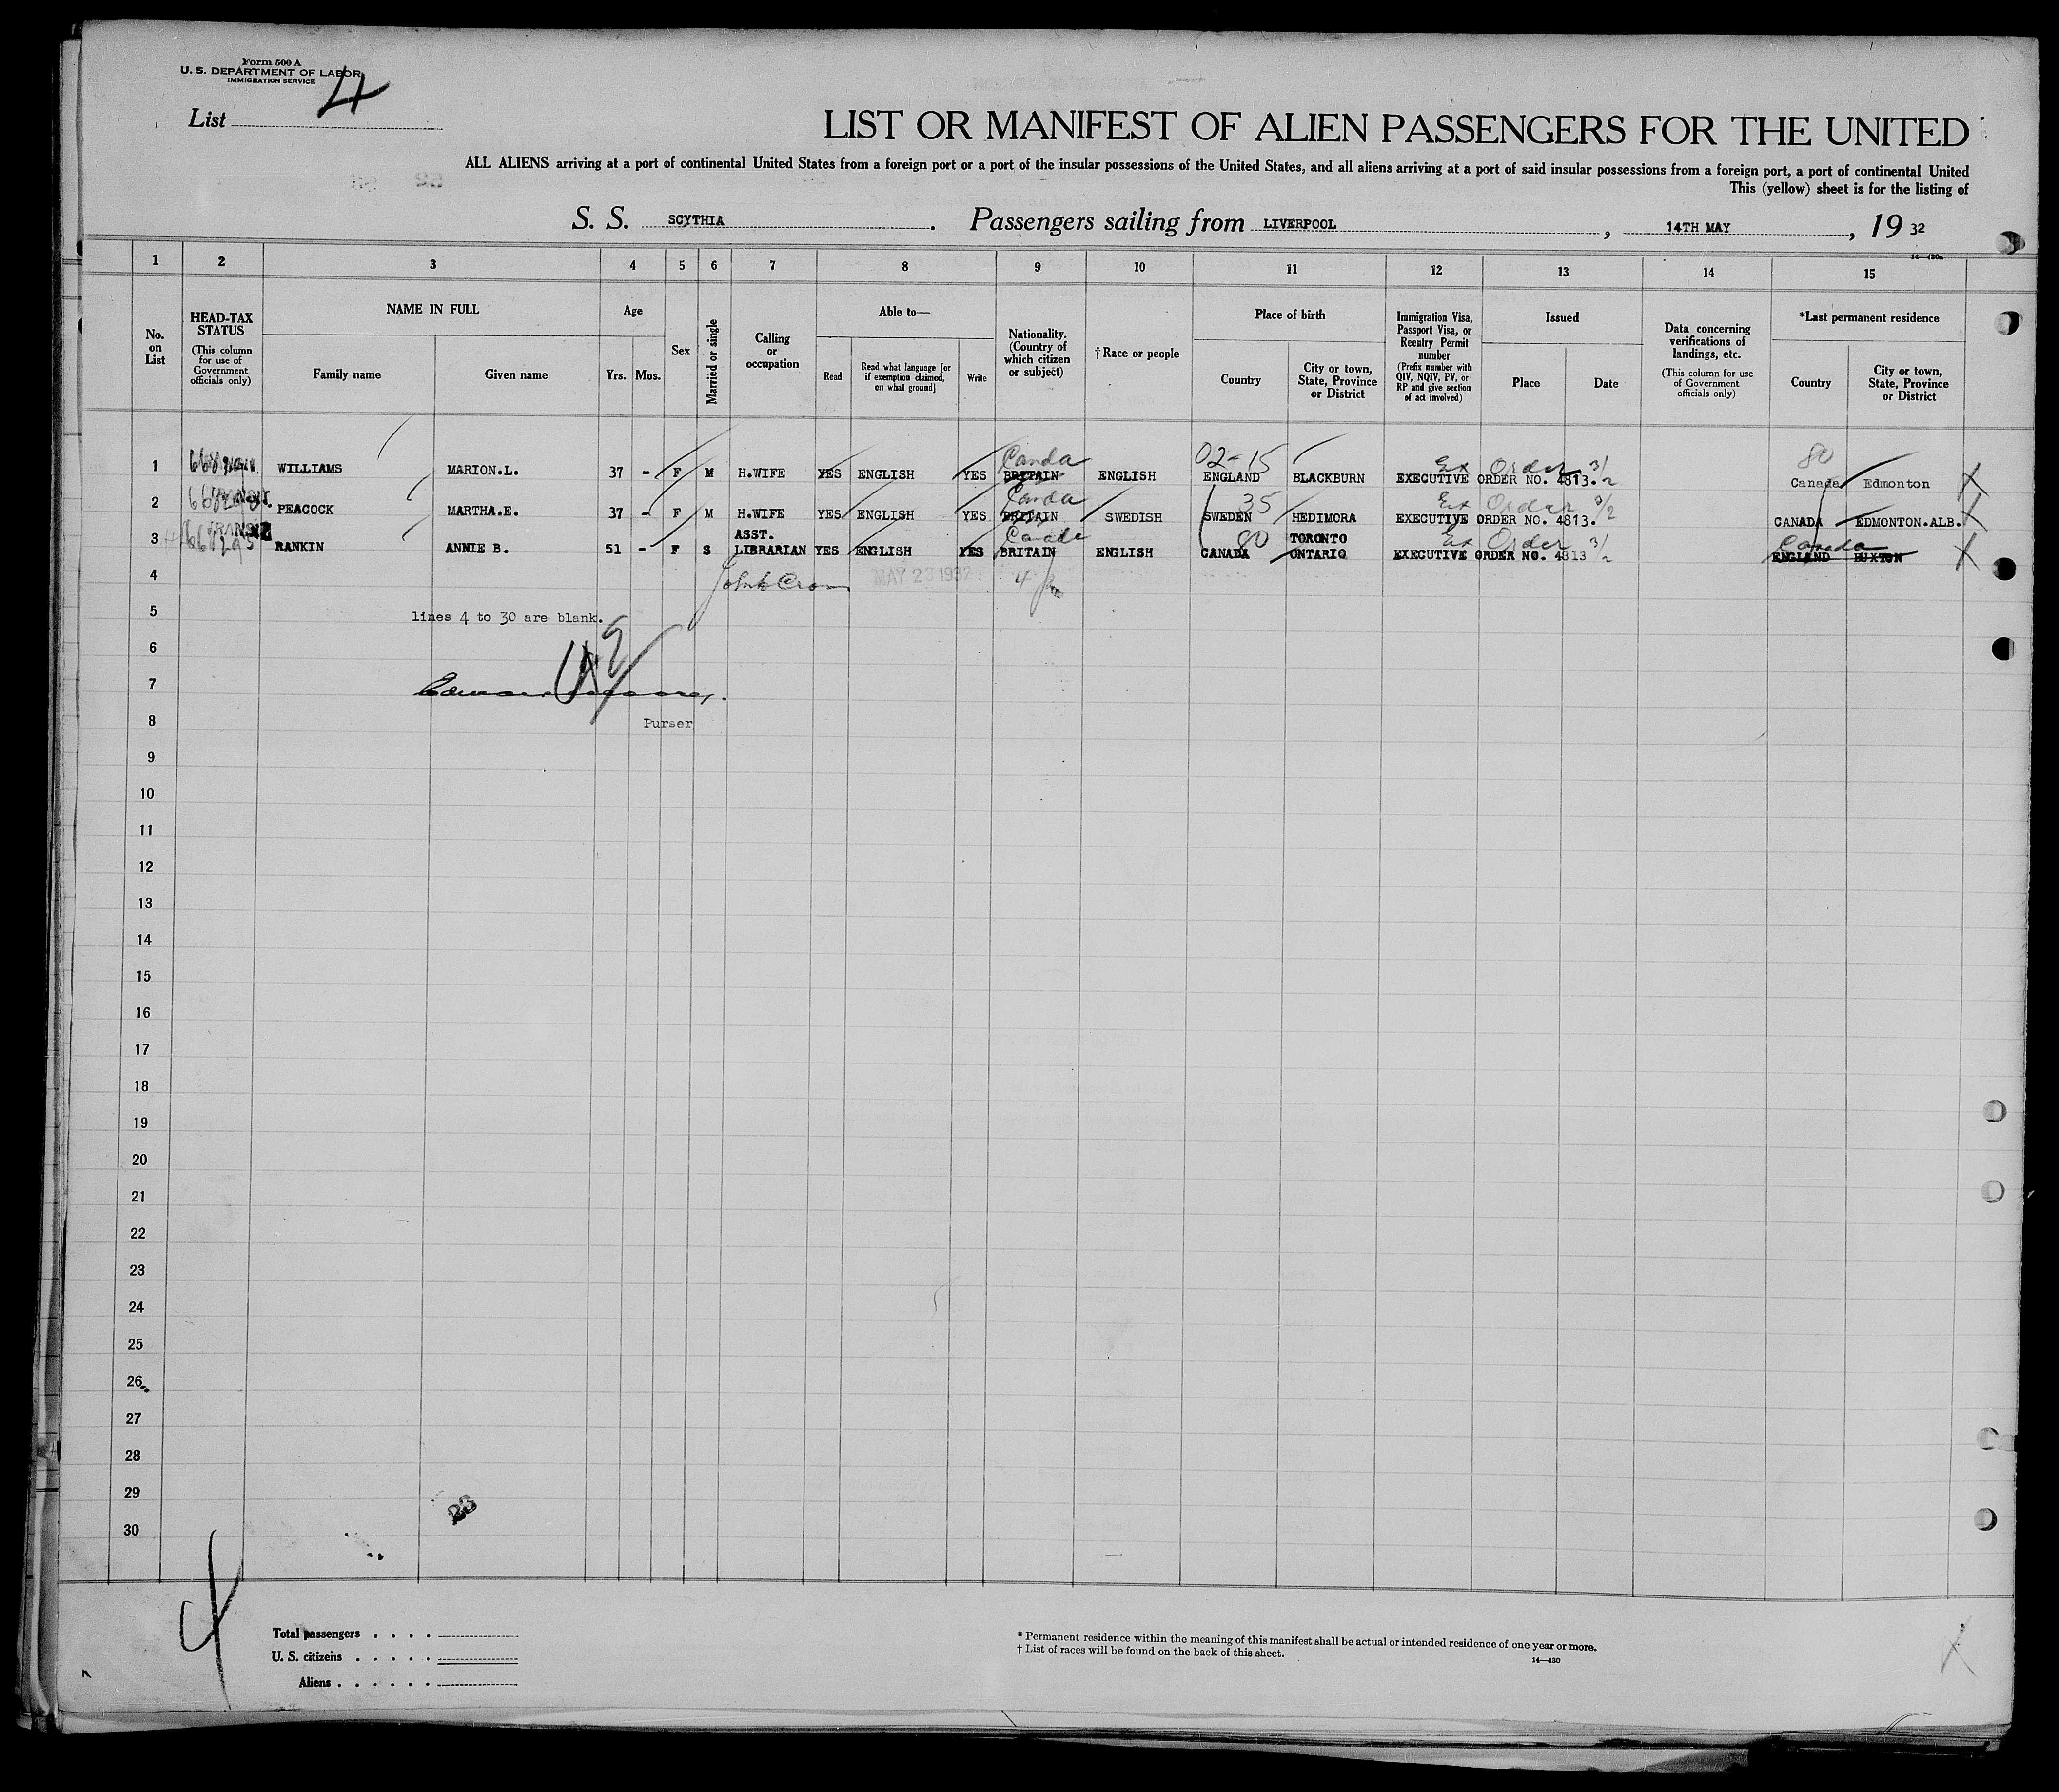 Form 500 A
U. S. DEPARTMENT OF LABOR
IMMIGRATION SERVICE
List 4
LIST OR MANIFEST OF ALIEN PASSENGERS FOR THE UNITED
ALL ALIENS arriving at a port of continental United States from a foreign port or a port of the insular possessions of the United States, and all aliens arriving at a port of said insular possessions from a foreign port, a port of continental United
This (yellow) sheet is for the listing of
S. S. SCYTHIA. Passengers sailing from LIVERPOOL, 14TH MAY, 19 32
14—430a
1 2 3 4 5 6 7 8 9 10 11 12 13 14 15
No. on List
HEAD-TAX STATUS (This column for use of Government officials only)
NAME IN FULL
Family name
Given name
Age
Yrs. Mos.
Sex
Married or single
Calling or occupation
Able to—
Read
Read what language [or if exemption claimed, on what ground]
Write
Nationality. (Country of which citizen or subject)
† Race or people
Place of birth
Country
City or town, State, Province or District
Immigration Visa, Passport Visa, or Reentry Permit number (Prefix number with QIV, NQIV, PV, or RP and give section of act involved)
Issued
Place
Date
Data concerning verifications of landings, etc. (This column for use of Government officials only)
*Last permanent residence
Country
City or town, State, Province or District
Canda 02-15 Ex Order 3/2 80
1 WILLIAMS MARION.L. 37 - F M H.WIFE YES ENGLISH YES BRITAIN ENGLISH ENGLAND BLACKBURN EXECUTIVE ORDER NO. 4813. Canada Edmonton
Canda 35 Ex Order 3/2
2 PEACOCK MARTHA.E. 37 - F M H.WIFE YES ENGLISH YES BRITAIN SWEDISH SWEDEN HEDIMORA EXECUTIVE ORDER NO. 4813. CANADA EDMONTON.ALB.
TRANSIT ASST. Canada 80 TORONTO Ex Order 3/2 Canada
3 RANKIN ANNIE B. 51 - F S LIBRARIAN YES ENGLISH YES BRITAIN ENGLISH CANADA ONTARIO EXECUTIVE ORDER NO. 4813 ENGLAND BUXTON
4 MAY 23 1932 4
5 lines 4 to 30 are blank.
6
7
8 Purser
9
10
11
12
13
14
15
16
17
18
19
20
21
22
23
24
25
26
27
28
29
30
4
Total passengers . . . .
U. S. citizens . . . . .
Aliens . . . . . .
* Permanent residence within the meaning of this manifest shall be actual or intended residence of one year or more.
† List of races will be found on the back of this sheet.
14—430